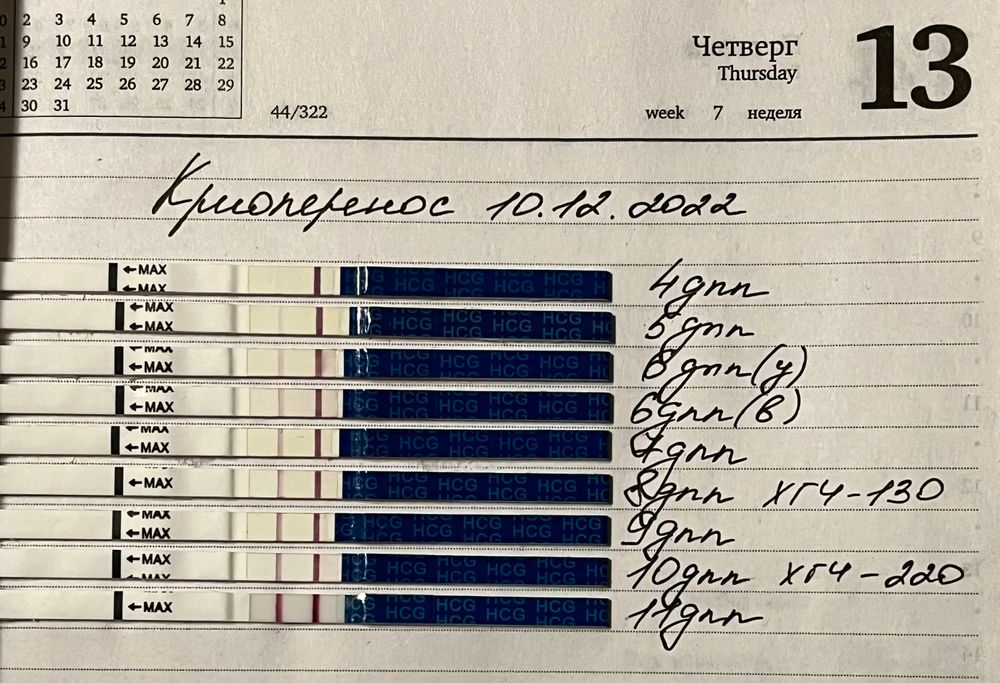 1
2 3 4 5 6 7 8
9 10 11 12 13 14 15
16 17 18 19 20 21 22
23 24 25 26 27 28 29
30 31
44/322
Четверг
Thursday
week 7 неделя
13
Криоперенос 10.12.2022
←MAX HCG HCG HCG HCG 4дпп
←MAX HCG HCG HCG HCG 5дпп
←MAX HCG HCG HCG HCG 6дпп(у)
←MAX HCG HCG HCG HCG 6дпп(в)
←MAX HCG HCG HCG HCG 7дпп
←MAX HCG HCG HCG HCG 8дпп ХГЧ-130
←MAX HCG HCG HCG HCG 9дпп
←MAX HCG HCG HCG HCG 10дпп ХГЧ-220
←MAX HCG HCG HCG HCG 11дпп